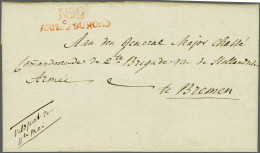 No. 6
ARM. DU NORD
Aan den Generaal Major Chassé
Commanderende de 2de Brigade van de Hollandsche
Armee
te Bremen